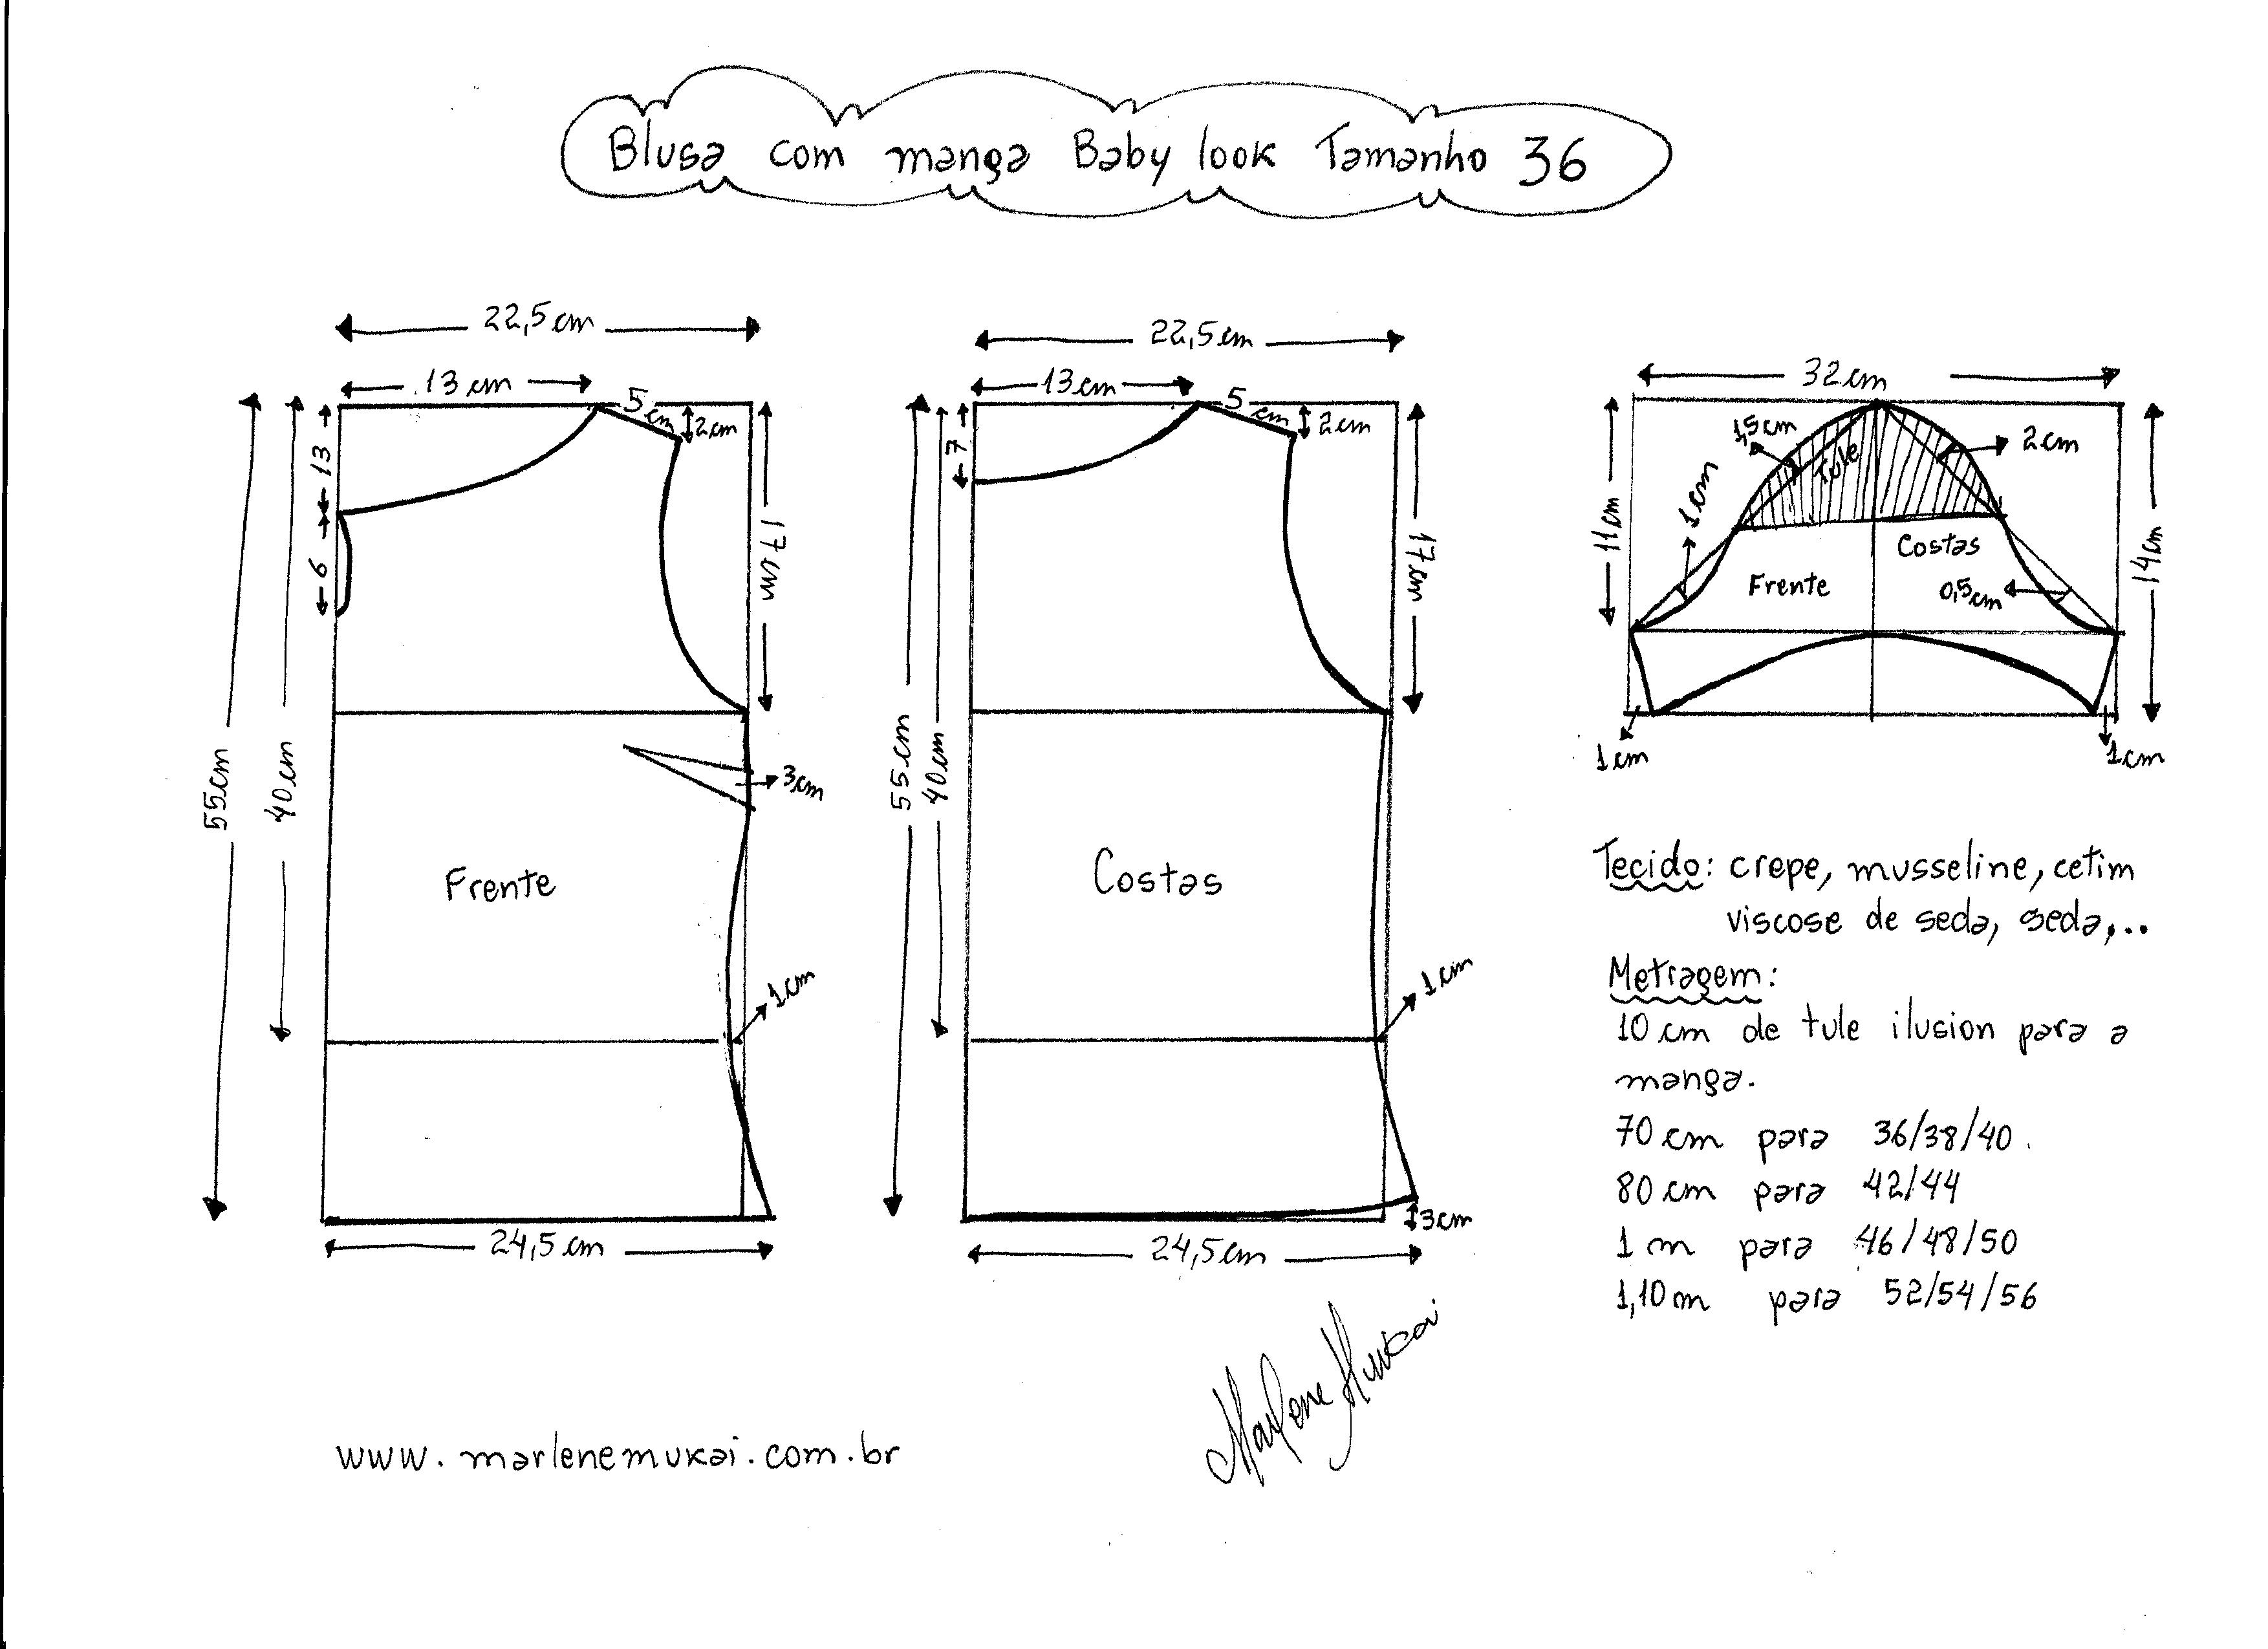 Blusa com manga Baby look Tamanho 36
22,5cm
13cm
5cm
2cm
13
6
17cm
55cm
40cm
3cm
Frente
1cm
24,5cm
22,5cm
13cm
5cm
2cm
7
17cm
55cm
40cm
Costas
1cm
3cm
24,5cm
32cm
1,5cm
Tule
2cm
1cm
11cm
14cm
Costas
Frente
0,5cm
1cm
1cm
Tecido: crepe, musseline, cetim
viscose de seda, seda,...
Metragem:
10 cm de tule ilusion para a
manga.
70 cm para 36/38/40.
80 cm para 42/44
1 m para 46/48/50
1,10m para 52/54/56
Marlene Mukai
www.marlenemukai.com.br